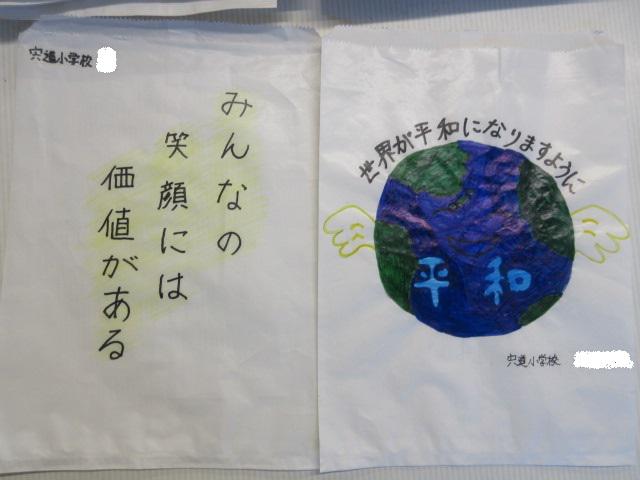 宍道小学校
みんなの
笑顔には
価値がある
世界が平和になりますように
平和
宍道小学校